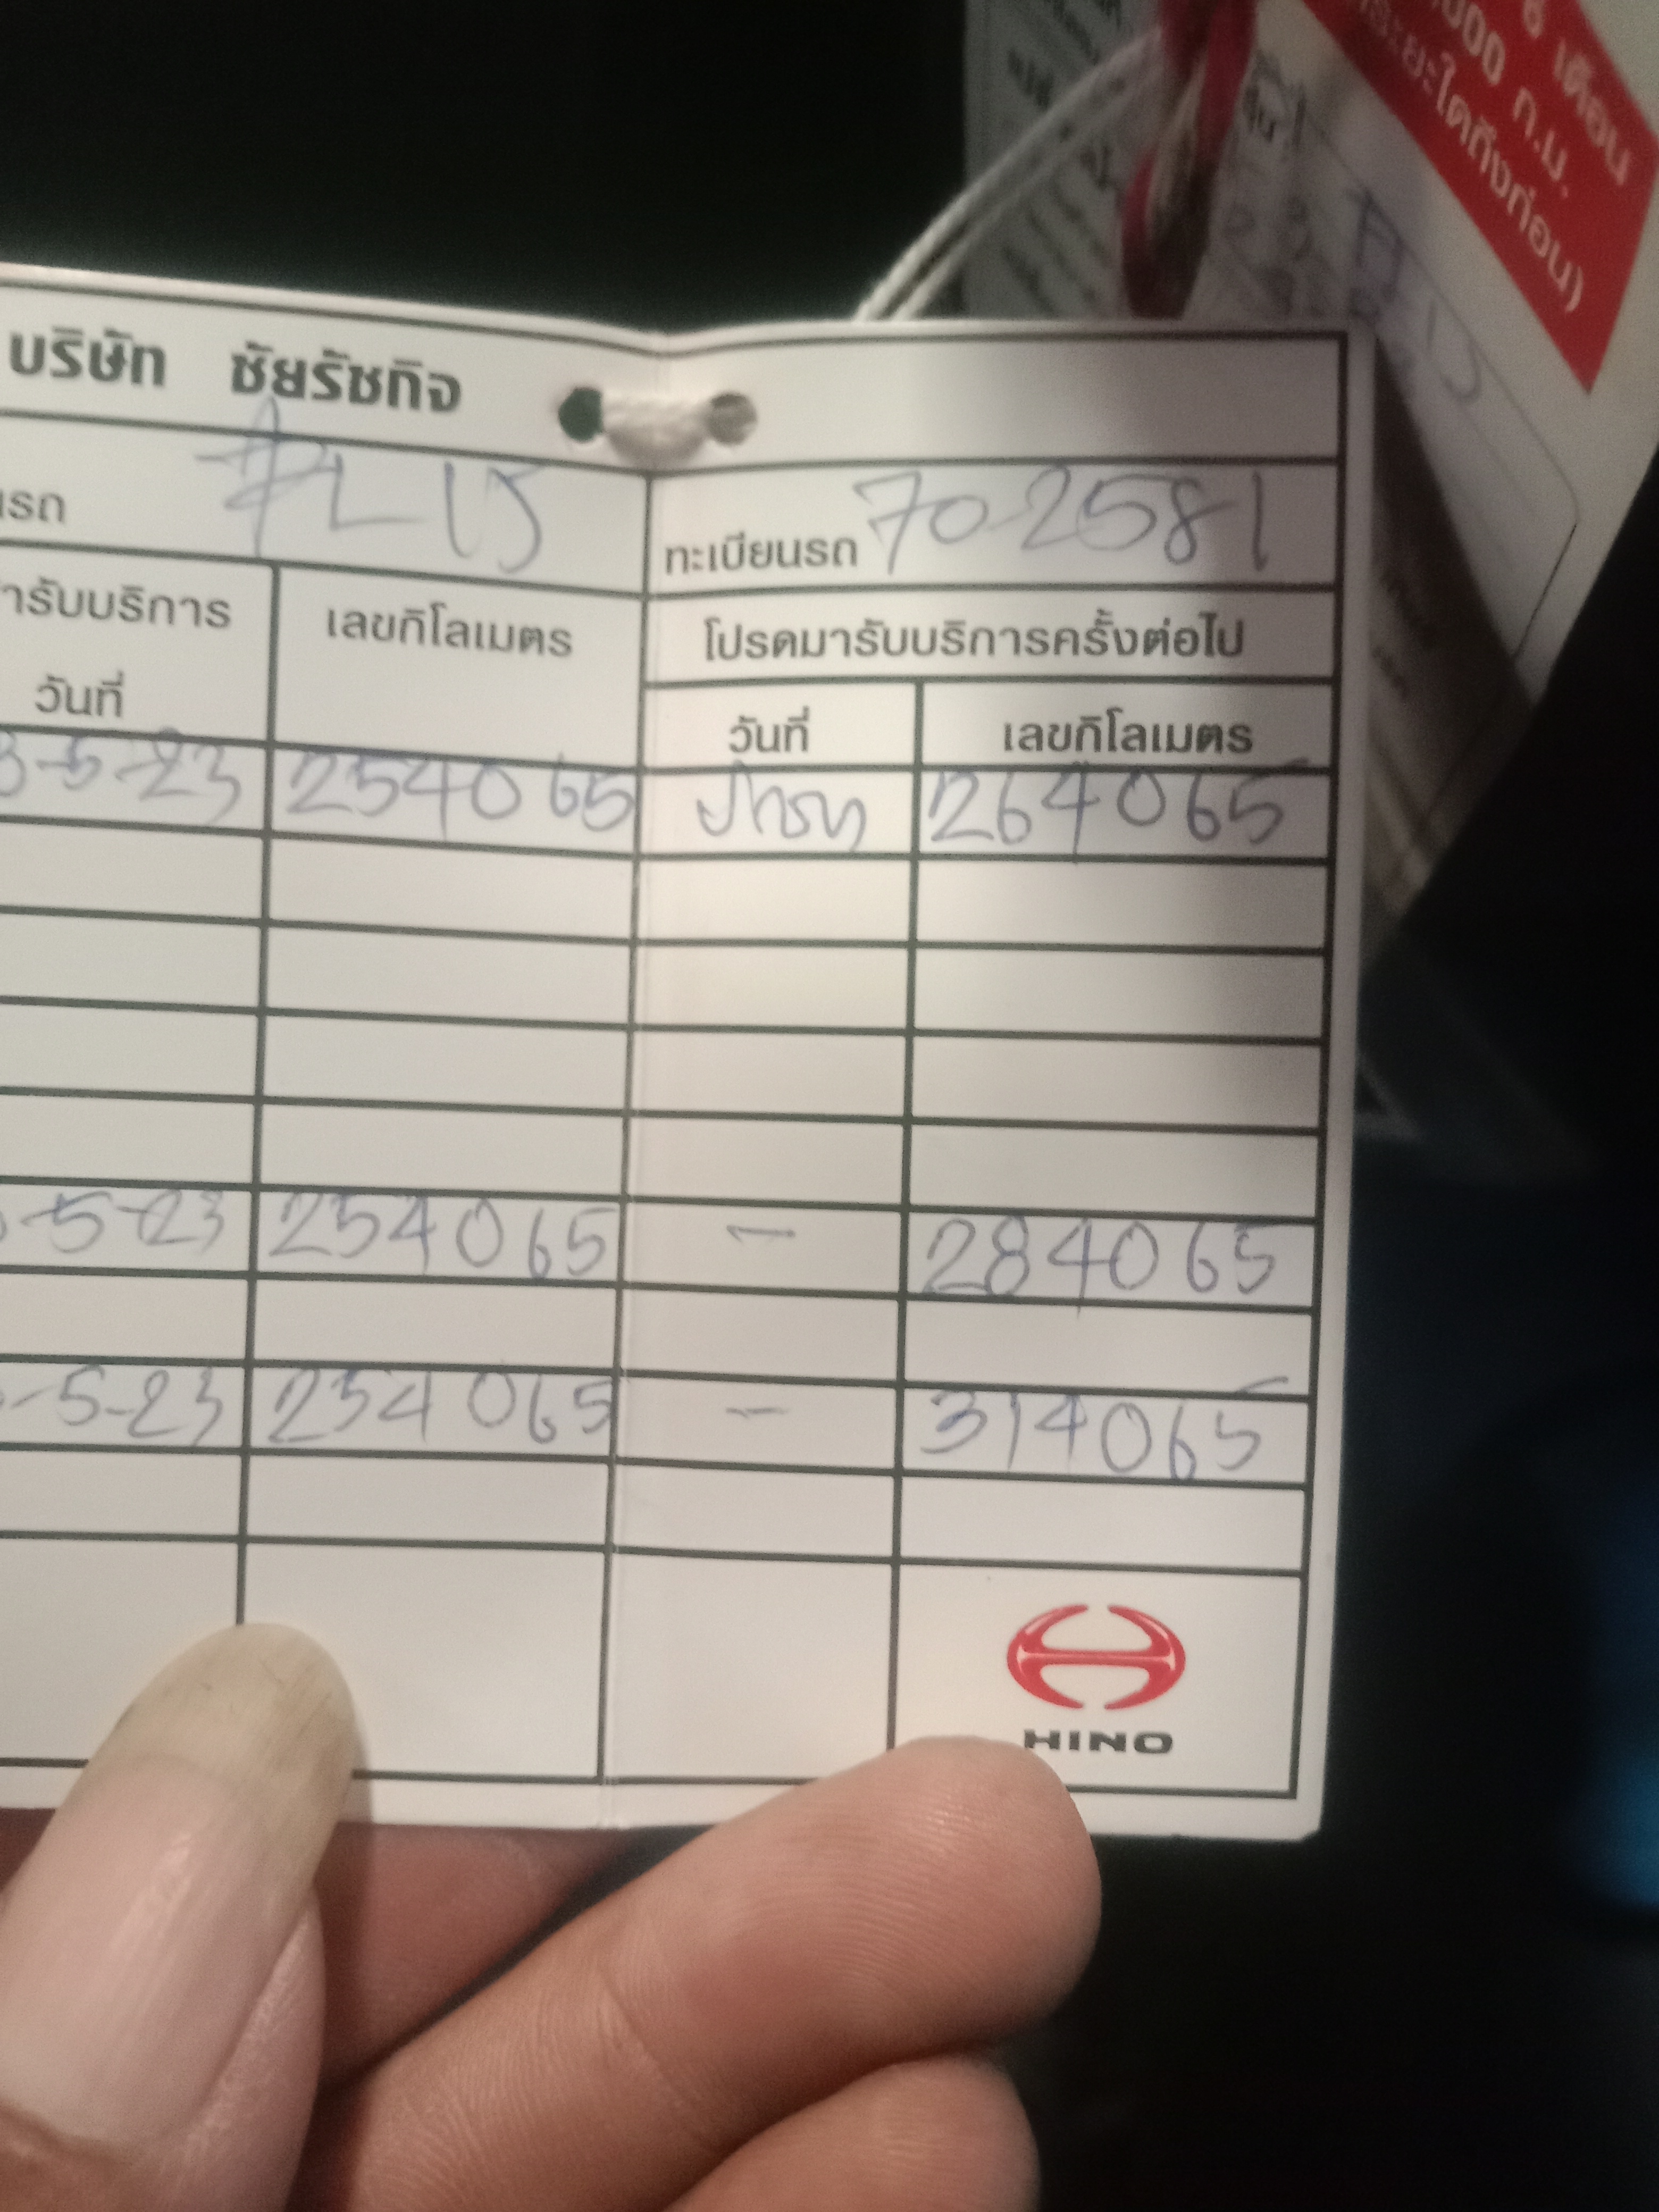 บริษัท ชัยรัชกิจ
นรถ FL 15 ทะเบียนรถ 70-2581
ารับบริการ เลขกิโลเมตร โปรดมารับบริการครั้งต่อไป
วันที่ วันที่ เลขกิโลเมตร
3-5-23 254065 264065
-5-23 254065 - 284065
-5-23 254065 - 314065
HINO
เดือน
000 ก.ม.
ระยะใดถึงก่อน)